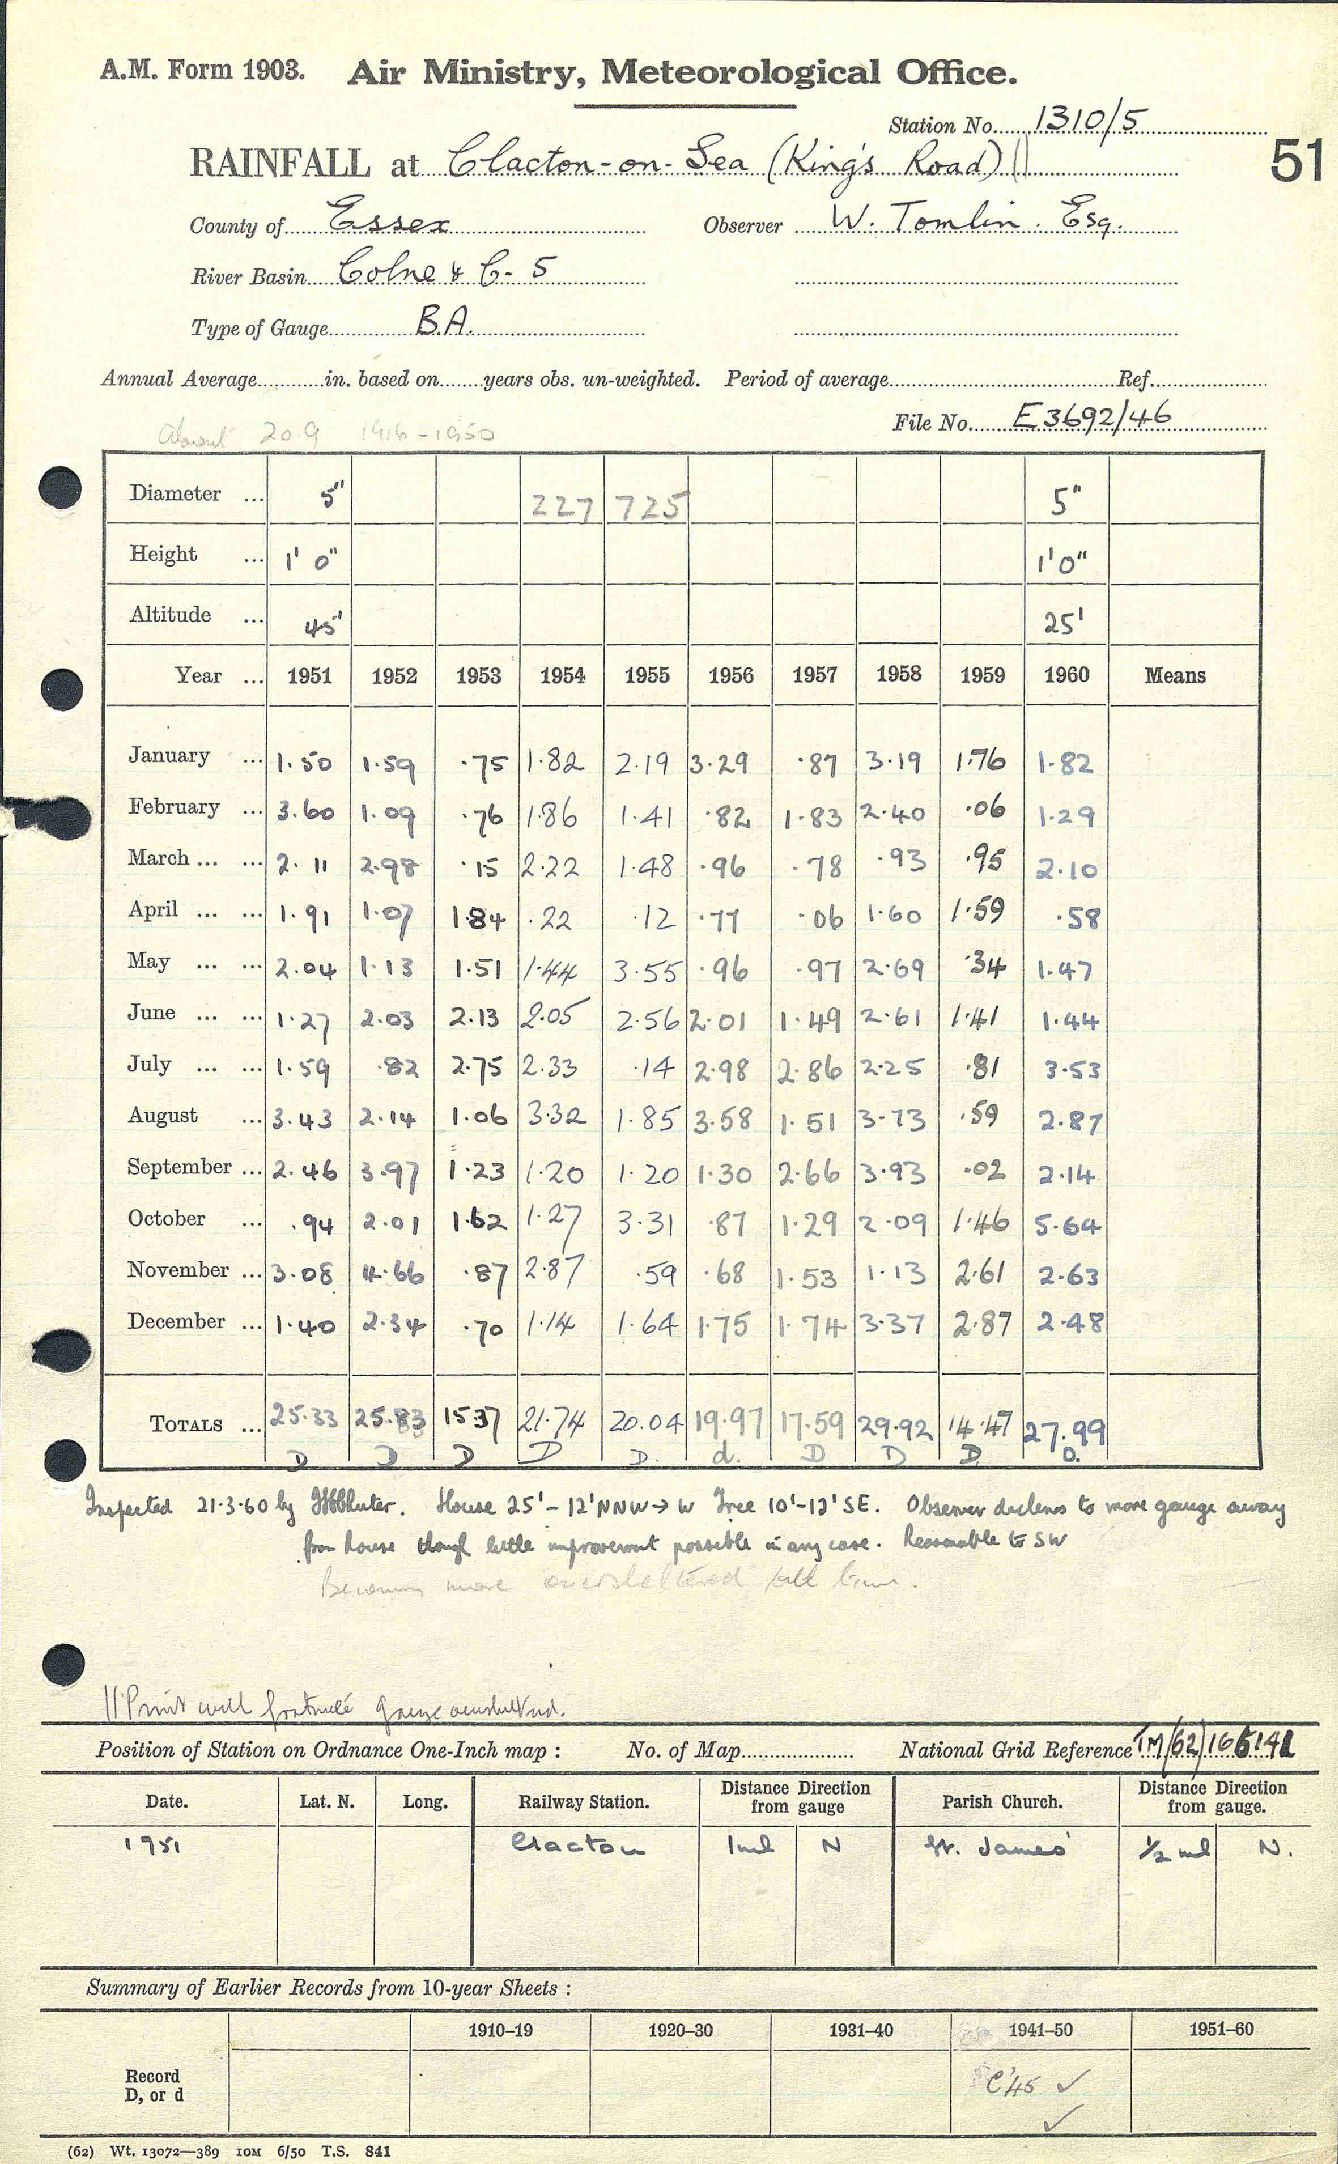 A.M. Form 1903. Air Ministry, Meteorological Office.
Station No. 1310/5
RAINFALL at Clacton-on-Sea (King's Road)
51
County of Essex Observer W. Tomlin. Esq.
River Basin Colne & C- 5
Type of Gauge B.A.
Annual Average in. based on years obs. un-weighted. Period of average Ref.
File No. E3692/46
About 20.9 1916-1950
Diameter ... 5" 227 725 5"
Height ... 1' 0" 1'0"
Altitude ... 45' 25'
Year ... 1951 1952 1953 1954 1955 1956 1957 1958 1959 1960 Means
January ... 1.50 1.59 .75 1.82 2.19 3.29 .87 3.19 1.76 1.82
February ... 3.60 1.09 .76 1.86 1.41 .82 1.83 2.40 .06 1.29
March ... ... 2.11 2.98 .15 2.22 1.48 .96 .78 .93 .95 2.10
April ... ... 1.91 1.07 1.84 .22 .12 .77 .06 1.60 1.59 .58
May ... ... 2.04 1.13 1.51 1.44 3.55 .96 .97 2.69 .34 1.47
June ... ... 1.27 2.03 2.13 2.05 2.56 2.01 1.49 2.61 1.41 1.44
July ... ... 1.59 .82 2.75 2.33 .14 2.98 2.86 2.25 .81 3.53
August ... 3.43 2.14 1.06 3.32 1.85 3.58 1.51 3.73 .59 2.87
September ... 2.46 3.97 1.23 1.20 1.20 1.30 2.66 3.93 .02 2.14
October ... .94 2.01 1.62 1.27 3.31 .87 1.29 2.09 1.46 5.64
November ... 3.08 4.66 .87 2.87 .59 .68 1.53 1.13 2.61 2.63
December ... 1.40 2.34 .70 1.14 1.64 1.75 1.74 3.37 2.87 2.48
TOTALS ... 25.33 25.83 15.37 21.74 20.04 19.97 17.59 29.92 14.47 27.99
D D D D D. d. D D D. D.
Inspected 21.3.60 by House 25'-12' NNW→W Tree 10'-12' SE. Observer declines to move gauge away
from house though little improvement possible in any case. Reasonable to SW
Becoming more oversheltered
gauge
Position of Station on Ordnance One-Inch map : No. of Map National Grid Reference TM/62/
Date. Lat. N. Long. Railway Station. Distance Direction from gauge Parish Church. Distance Direction from gauge.
1951 Clacton 1 ml N St. James' 1/2 ml N.
Summary of Earlier Records from 10-year Sheets :
1910–19 1920–30 1931–40 1941–50 1951–60
Record
D, or d
C'45 ✓
✓
(62) Wt. 13072—389 10M 6/50 T.S. 841